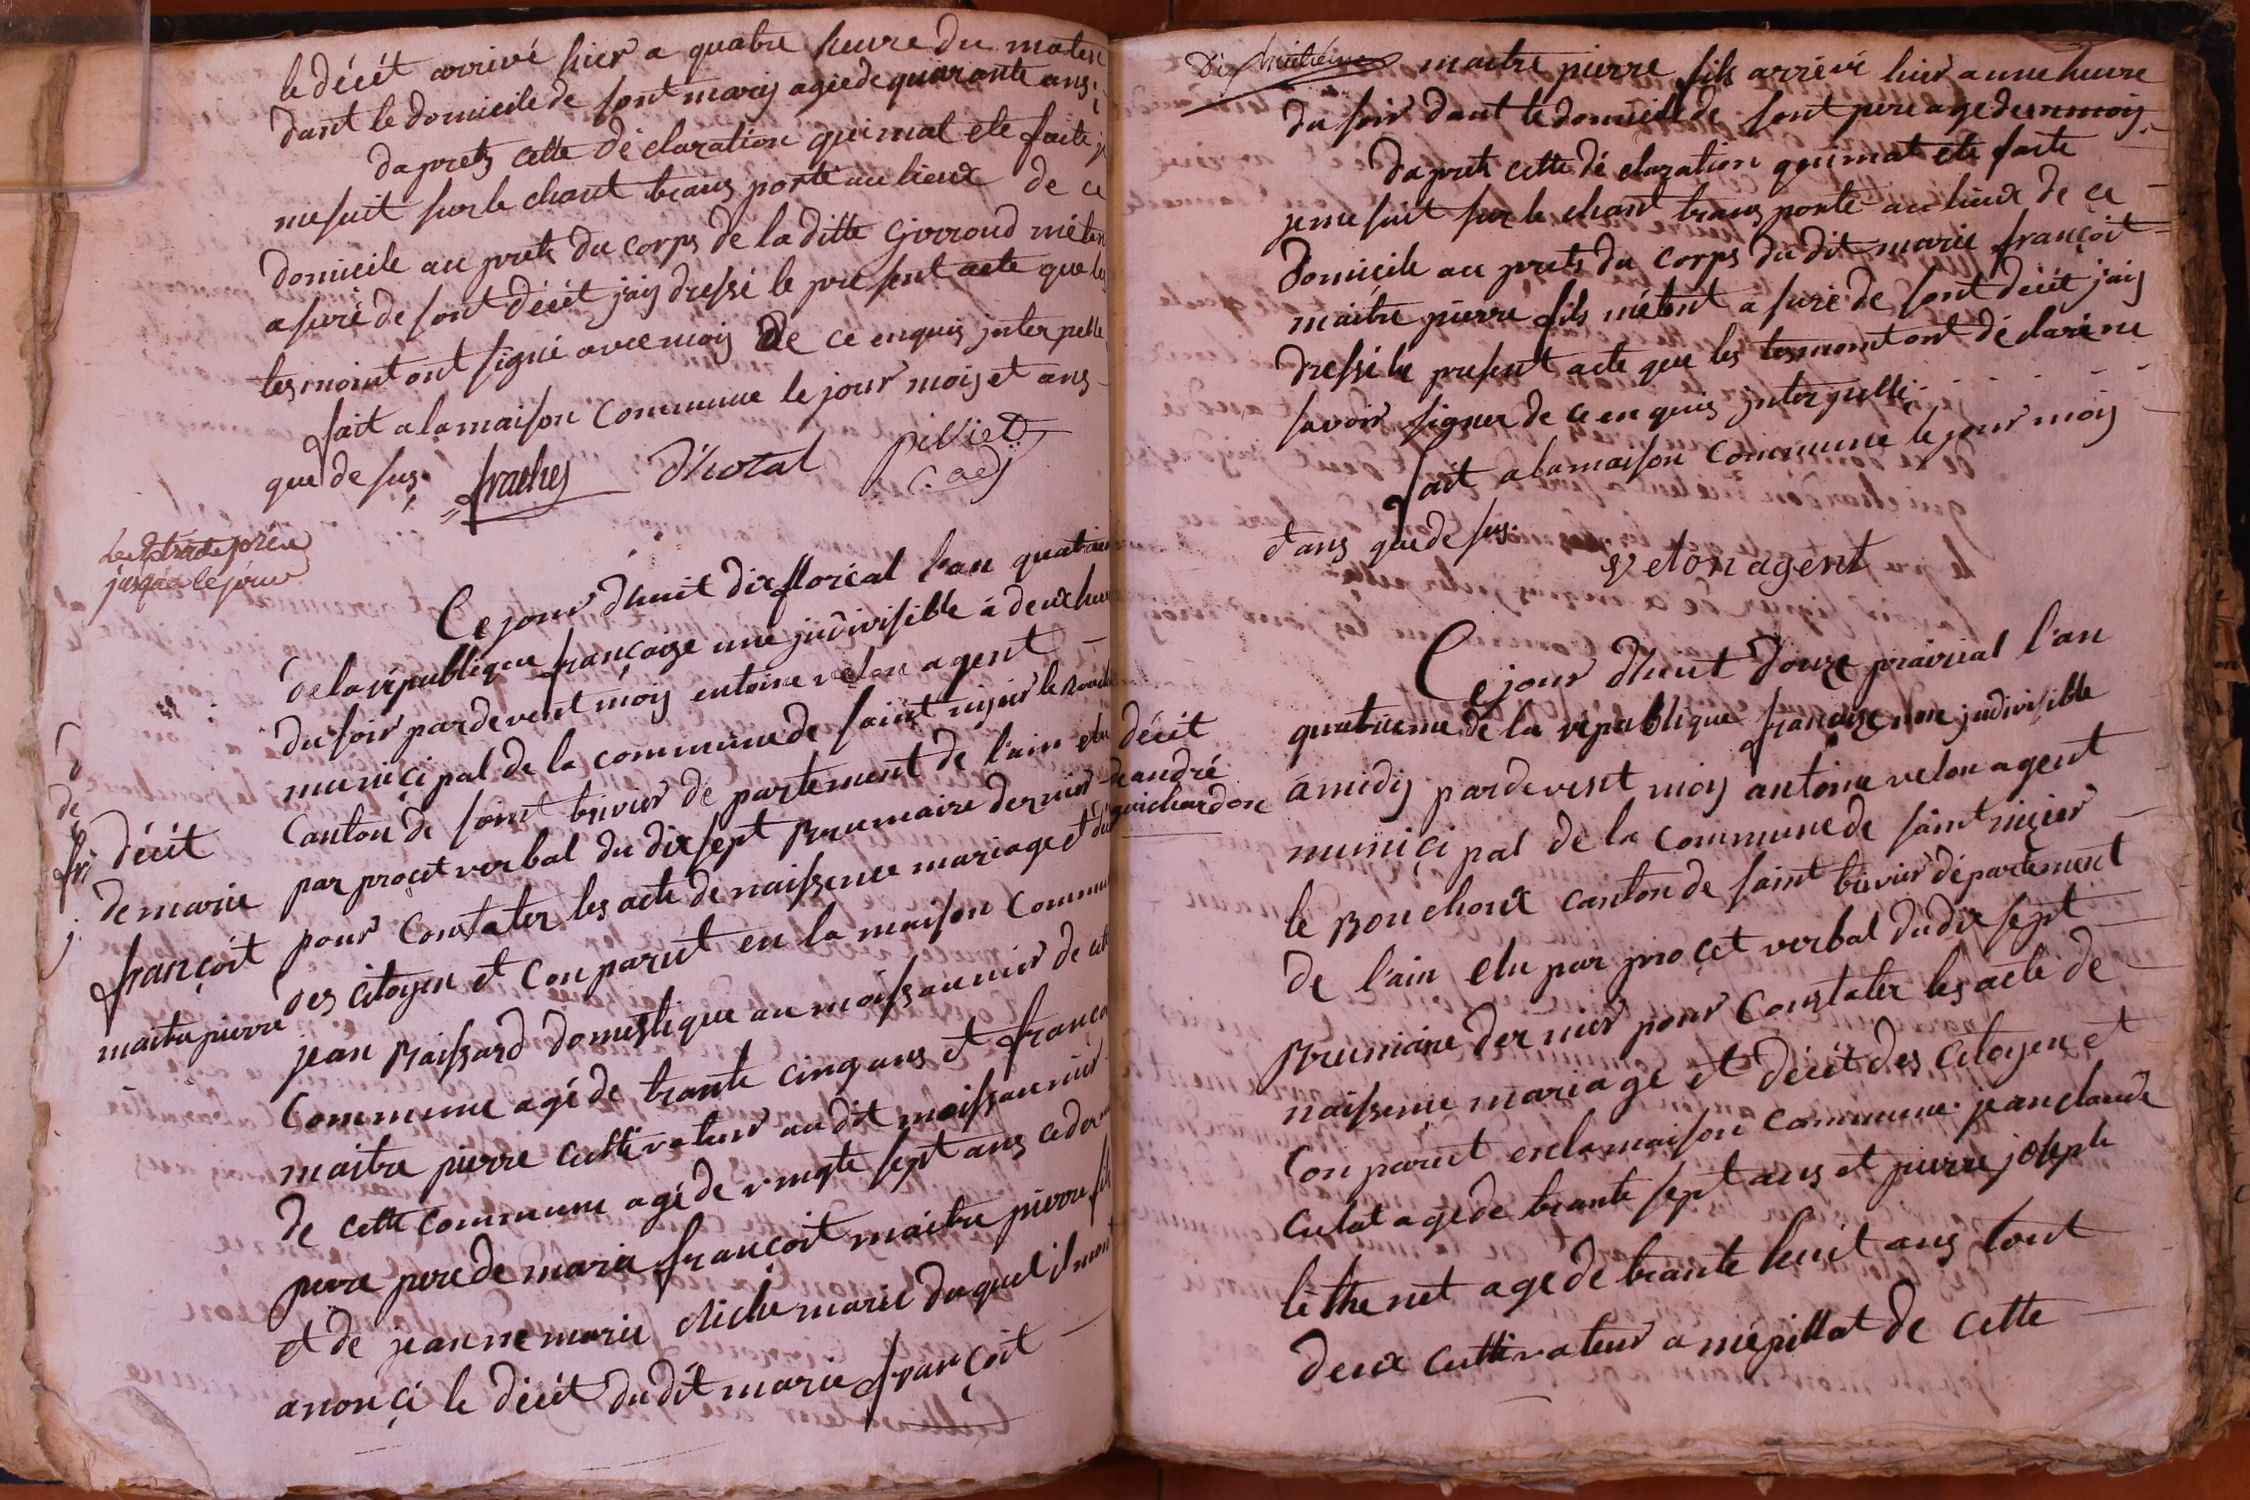 le décét arrivé hier a quatre heure du maten
dant le domicile de sont mary agée de quarante ans
daprets cette déclaration quimat ete faite je
me suit sur le chant transporté au lieux de ce
domicile au prets du corps de la ditte Girroud méten
asuré de sont décét jaiy dressé le present acte que les
tesmoint ont signé avec moiy de ce enquis jnterpellé
fait a la maison commune le jour mois et ans
que de sus. frachey d'hotal pilliet
C. adj
jusqu'a ce jour
Ce jour dhuit dix floréal l'an quatriem
de la république françaize une judivisible á deux heur
du soir pardevent moiy entoine velon agent
muniçipal de la commune de saint nizier le Bouch
Canton de saint trivier de partement de l'ain elu
par proçet verbal du dix sept Brumaire dernier
pour Constater les acte de naissence mariage et dé
des citoyen et Conparut en la maison Commun
jean Raissard domestique au moissaunier de cett
Commune agé de trante cinq ans et franço
maitre pierre cultivateur audit moissaunier
de cette commune agé de vingte sept ans ce der
pere de marie françoit maitre pierre fil
et de jeanne marie duquel il mont
anonçé le décét dudit marie françoit
décét
de marie
françoit
maitre pierre
Dix huitiéme maitre pierre fils arrivé hier a une heure
du soir dant le domicile de sont pere age de un moiy
daprets cette déclaration quimat ete faite
je me suit sur le chant transporte au lieux de ce
Domicile au prets du corps du dit marie françoit
maitre pierre fils métent asuré de sont décét jaiy
dressé le present acte que les tesmoint ont déclaré ne
savoir signer de ce en quis jnterpellé
fait a la maison Commune le jour moiy
et ans que de sus.
velon agent
Ce jour dhuit douze prairial l'an
quatrieme de la république françaize une judivisible
a midy pardevent moiy antoine velon agent
muniçipal de la Commune de saint nizier
le Bouchoux canton de saint trivier département
de l'ain elu par proçet verbal du dix sept
Brumaire dernier pour Constater les acte de
naissence mariage et décét des Citoyen et
Conparut en la maison commune jean claude
Culat age de trante sept ans et pierre joseph
léthenet age de trante huit ans tout
deux cultivateur a mépillat de cette
décét
de andré
guichardon